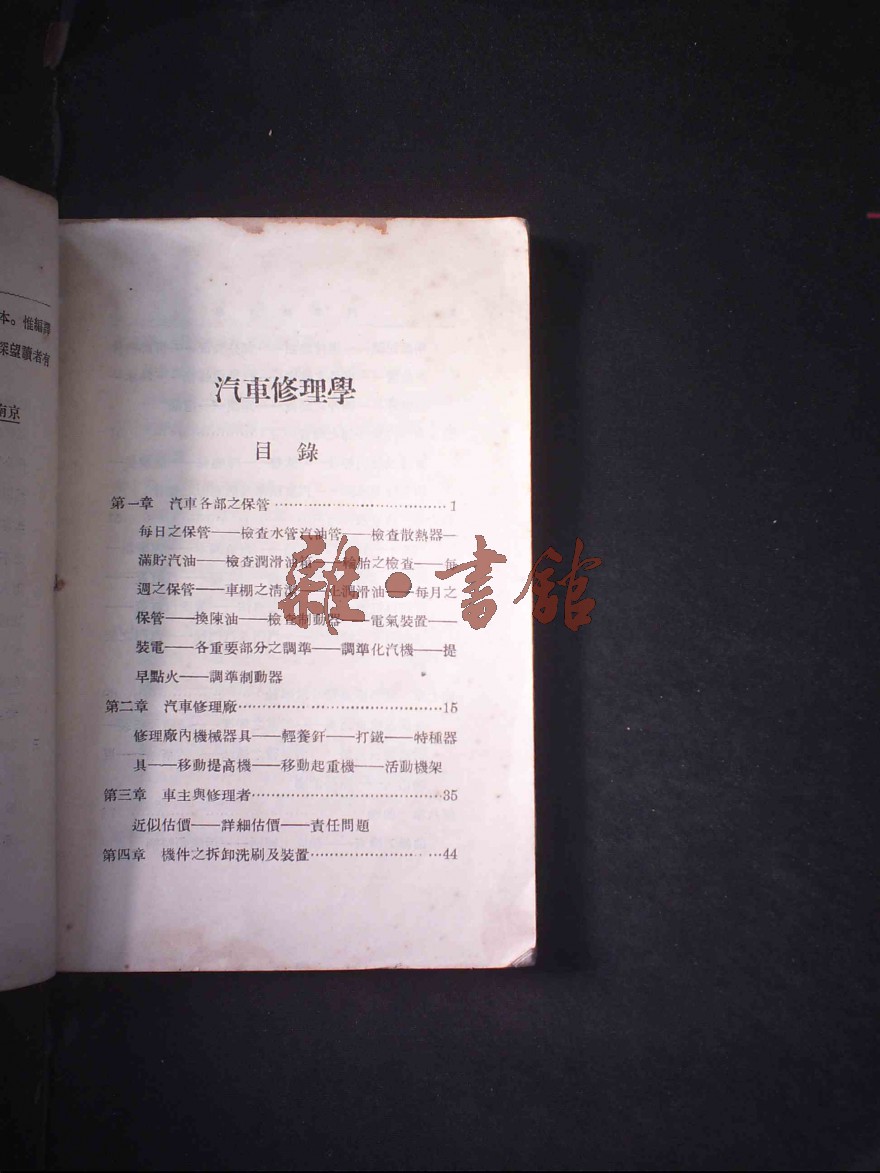 本。惟編譯
深望讀者有
南京
汽車修理學
目錄
第一章 汽車各部之保管……………………………1
每日之保管——檢查水管汽油管——檢查散熱器—
滿貯汽油——檢查潤滑油——輪胎之檢查——每
週之保管——車棚之清潔——上潤滑油——每月之
保管——換陳油——檢查制動器——電氣裝置——
裝電——各重要部分之調準——調準化汽機——提
早點火——調準制動器
第二章 汽車修理廠…………………………………15
修理廠內機械器具——輕養釬——打鐵——特種器
具——移動提高機——移動起重機——活動機架
第三章 車主與修理者………………………………35
近似估價——詳細估價——責任問題
第四章 機件之拆卸洗刷及裝置……………………44
雜·書館